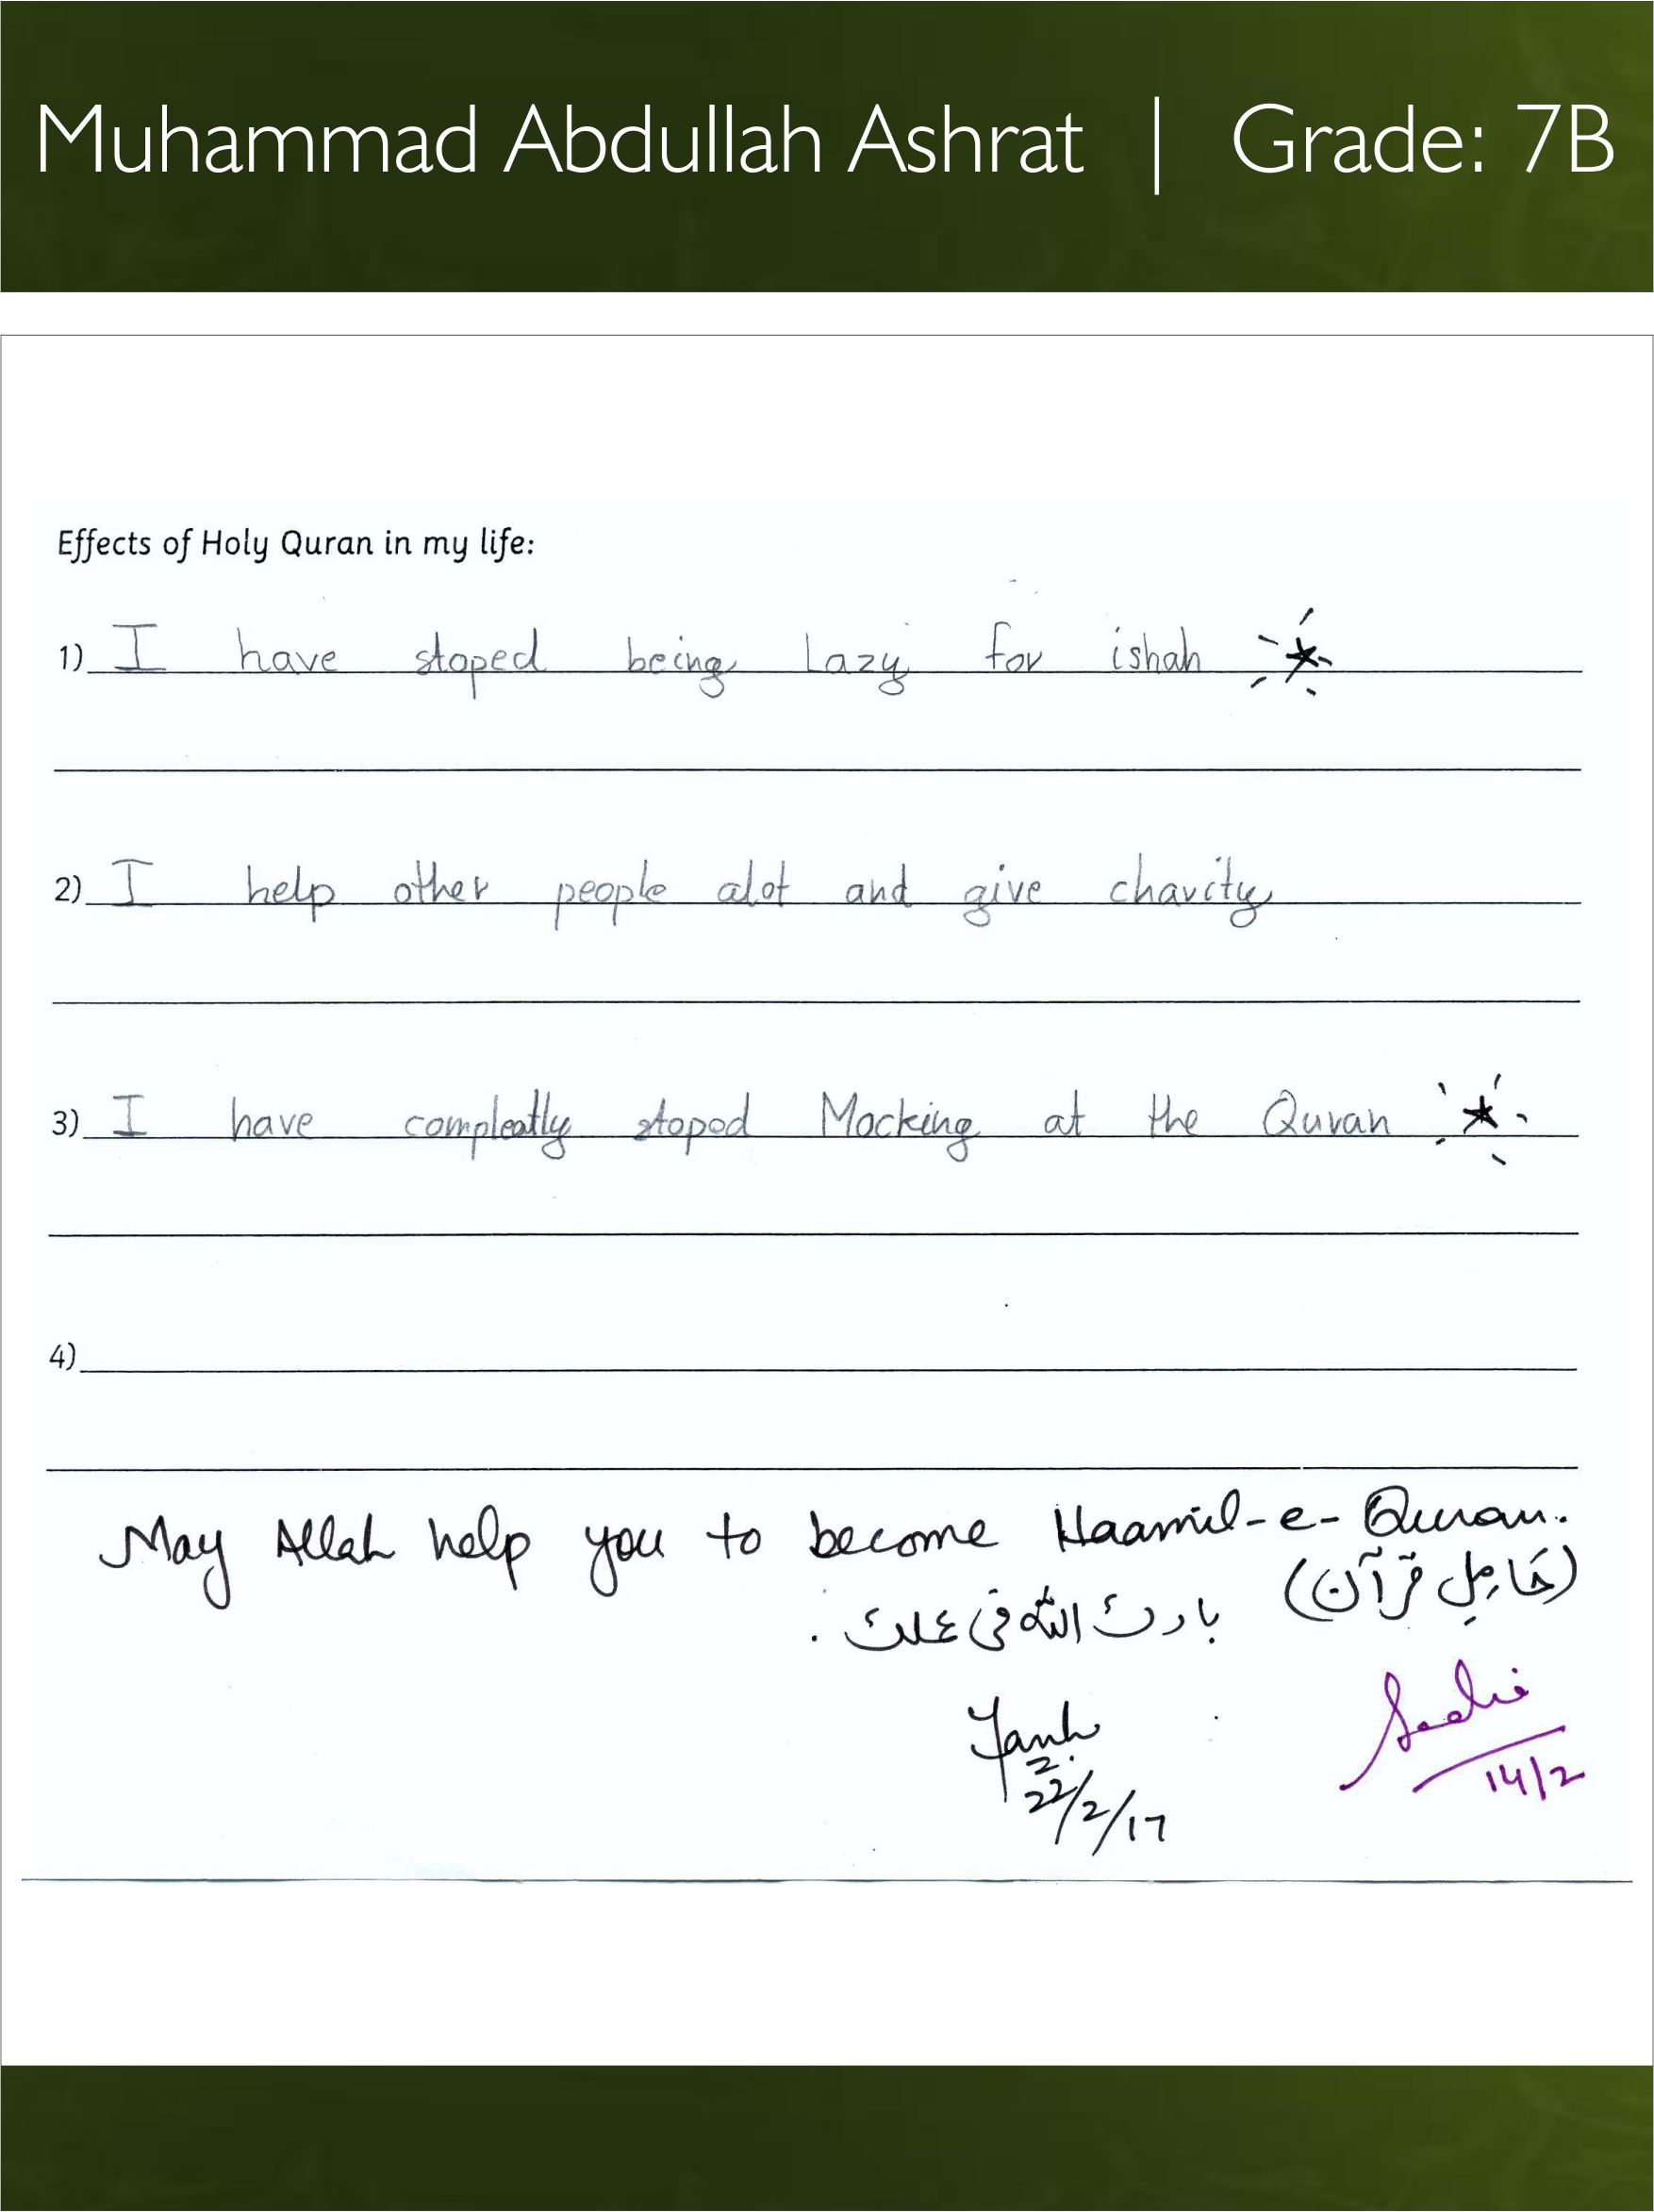 Muhammad Abdullah Ashrat | Grade: 7B
Effects of Holy Quran in my life:
1) I have stoped being Lazy for ishah
2) I help other people alot and give charity
3) I have compleatly stoped Mocking at the Quran
4)
May Allah help you to become Haamil-e-Quran.
(حَامِلِ قرآن)
بارك الله فى علمك .
22/2/17
14/2